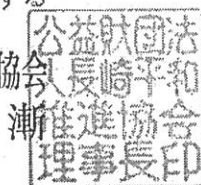 協会
漸
公益財団法
人長崎平和
推進協会
理事長印